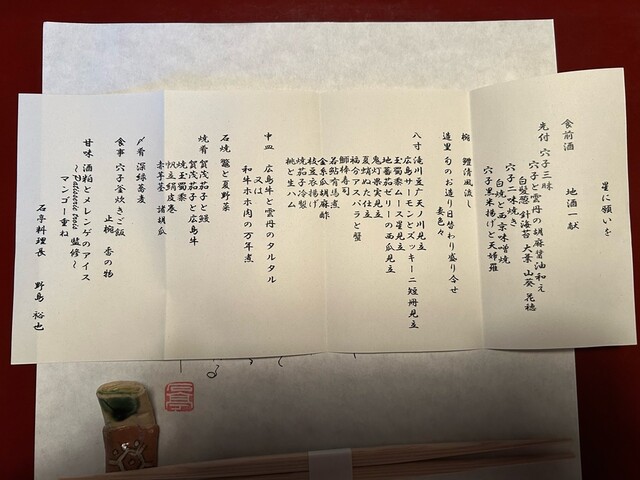 星に願いを
食前酒　地酒一献
先付　穴子三昧
穴子と雲丹の胡麻醤油和え
白髪葱　針海苔　大葉　山葵　花穂
穴子二味焼き
白焼と西京味噌焼
穴子黒米揚げと天婦羅
椀　鱧清風流し
造里　旬のお造り日替わり盛り合せ
妻色々
八寸　滝川豆腐天ノ川見立
広島サーモンとズッキーニ短冊見立
玉蜀黍ムース星見立
地蕃茄ゼリーの西瓜見立
鬼灯果実見立
夏ぬた見立
福分アスパラと蟹
鯵棒寿司
若鮎有馬煮
金糸瓜胡麻酢
枝豆衣揚げ
焼茄子冷製
桃と生ハム
中皿　広島牛と雲丹のタルタル
又は
和牛ホホ肉の万年煮
石焼　鱉と夏野菜
焼肴　賀茂茄子と鰻
賀茂茄子と広島牛
焼玉蜀黍
帆立絹皮巻
赤芋茎　諸胡瓜
〆肴　深緑蕎麦
食事　穴子釜炊きご飯
止椀　香の物
甘味　酒粕とメレンゲのアイス
～Patisserie trois 監修～
マンゴー重ね
石亭料理長　野島 裕也
石亭